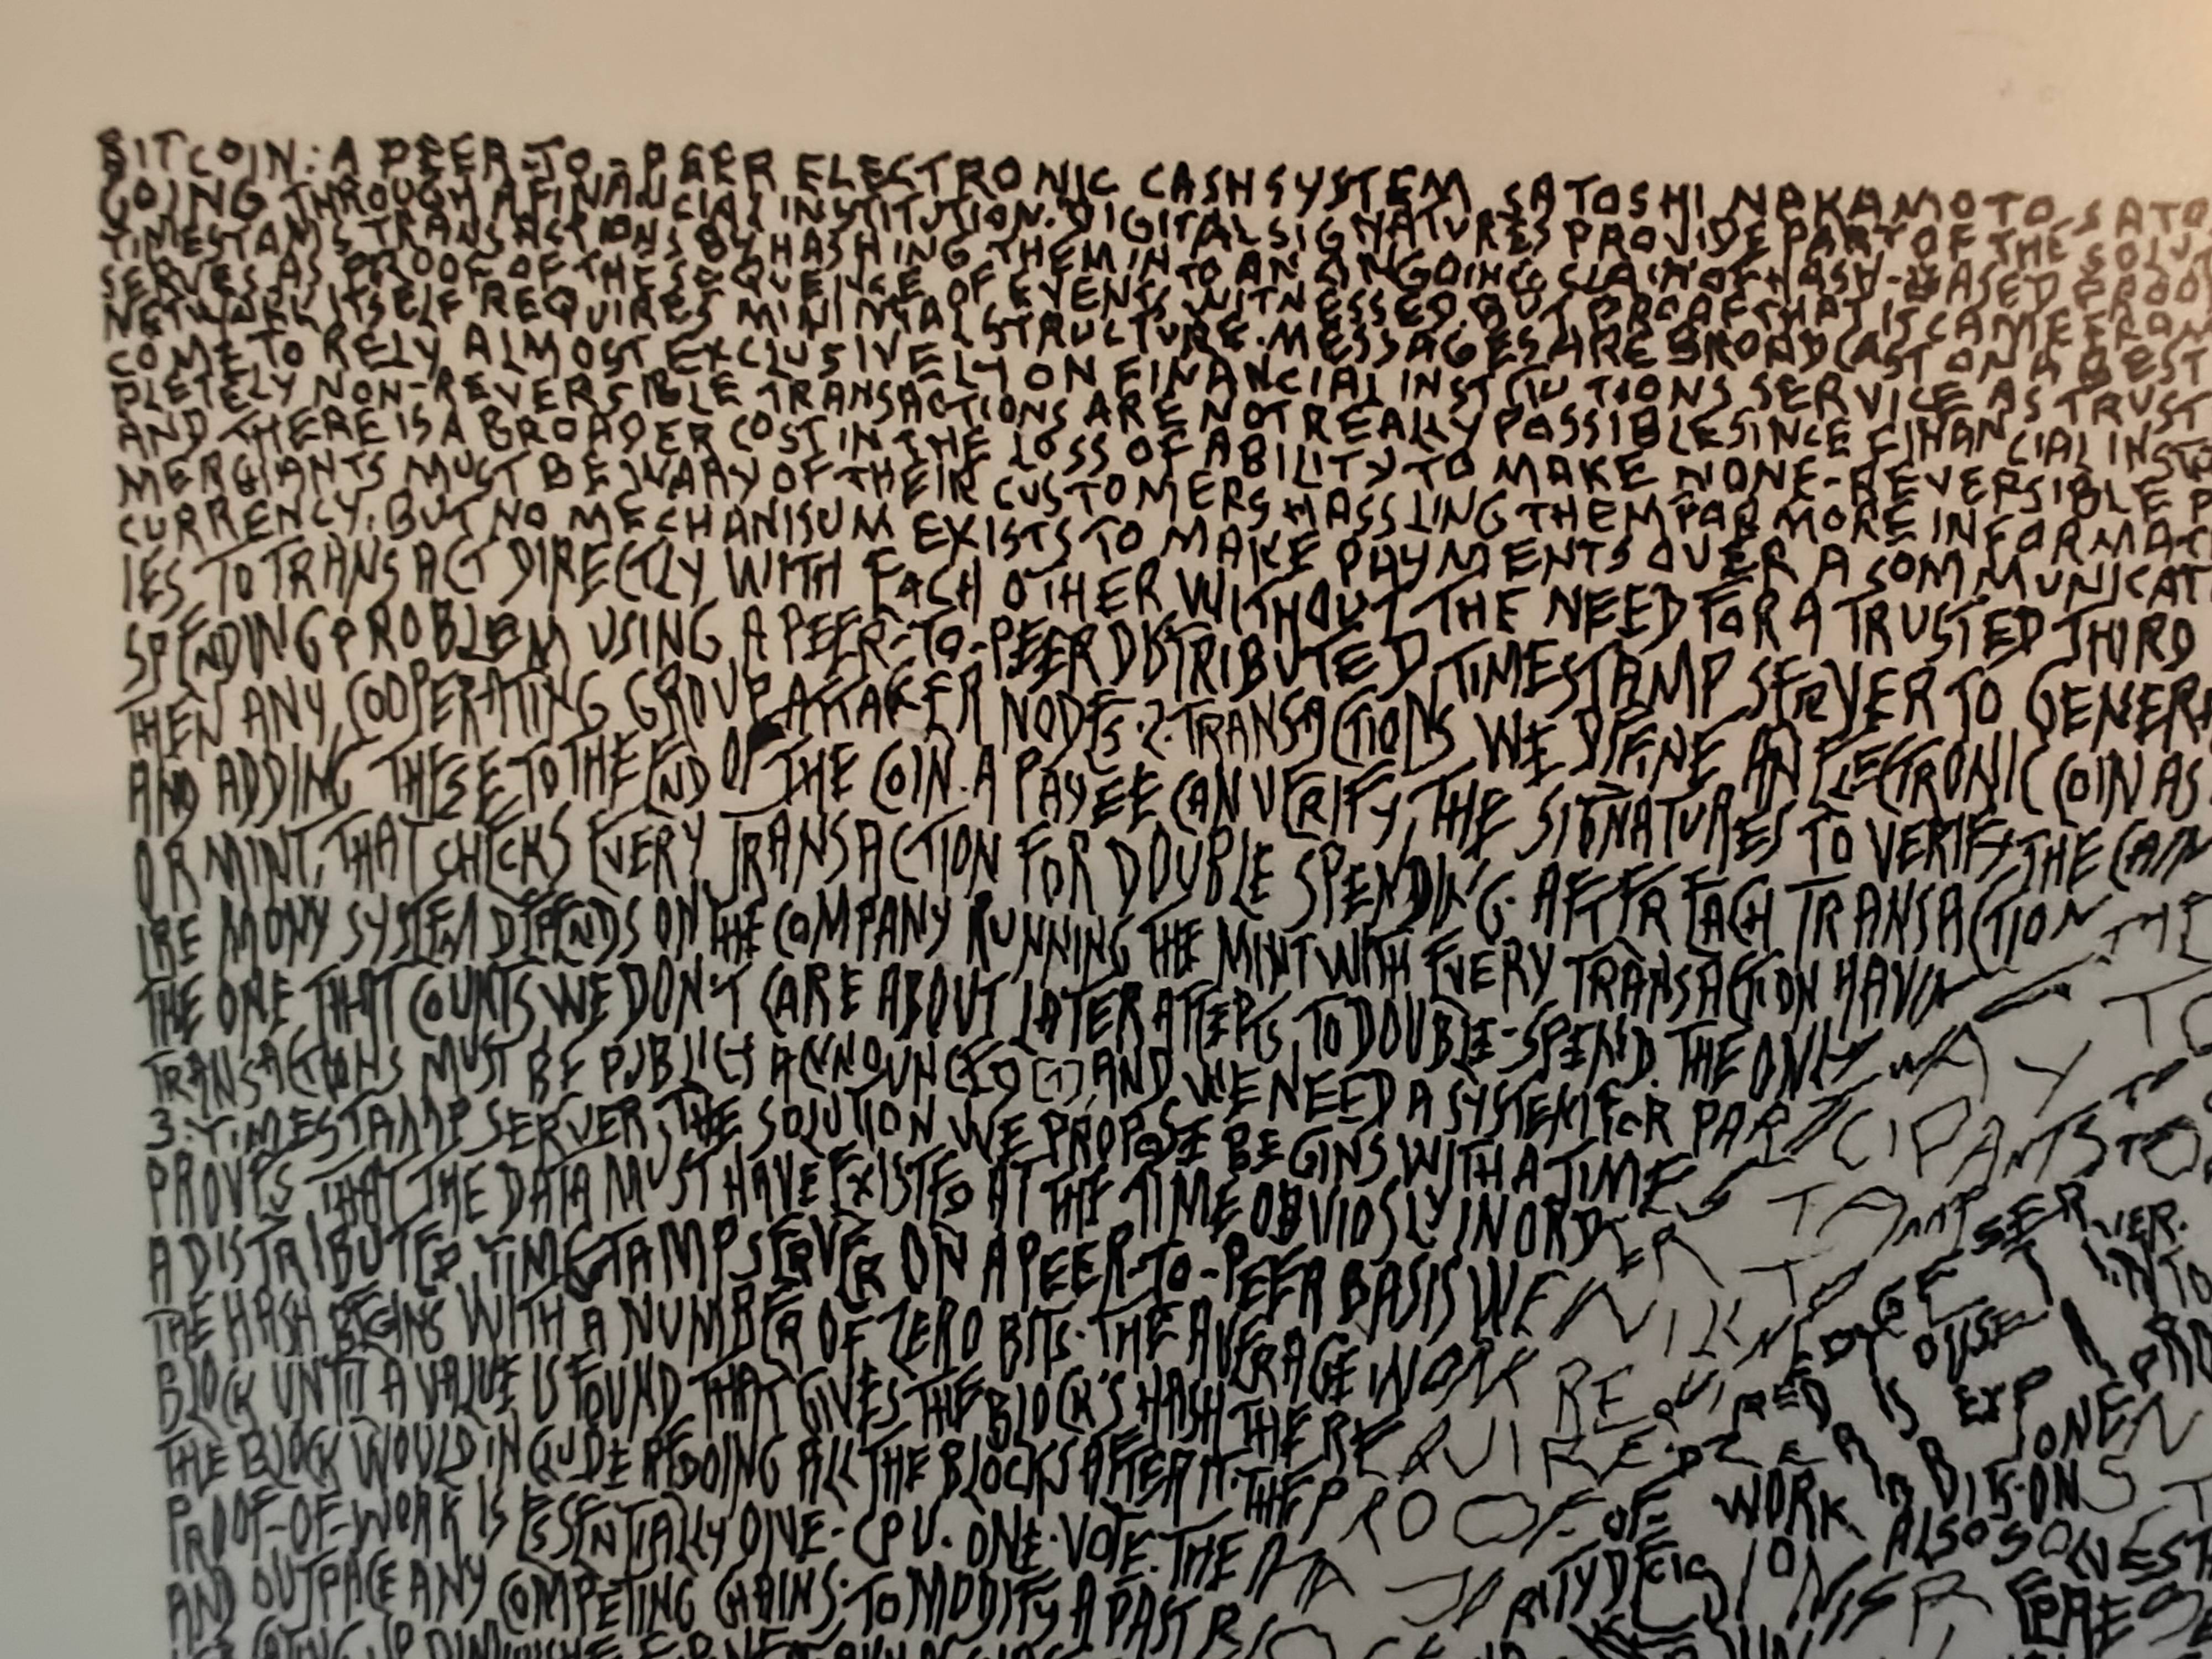 BITCOIN: A PEER-TO-PEER ELECTRONIC CASH SYSTEM SATOSHI NAKAMOTO SATO
GOING THROUGH A FINANCIAL INSTITUTION. DIGITAL SIGNATURES PROVIDE PART OF THE SOLU
TIMESTAMS TRANSACTIONS BY HASHING THEM INTO AN ONGOING CHAIN OF HASH-BASED PROO
SERVES AS PROOF OF THE SEQUENCE OF EVENTS WITNESSED, BUT PROOF THAT IT CAME FROM
NETWORK ITSELF REQUIRES MINIMAL STRUCTURE. MESSAGES ARE BROADCAST ON A BEST
COME TO RELY ALMOST EXCLUSIVELY ON FINANCIAL INSTITUTIONS SERVICE AS TRUST
PLETELY NON-REVERSIBLE TRANSACTIONS ARE NOT REALLY POSSIBLE SINCE FINANCIAL INST
AND THERE IS A BROADER COST IN THE LOSS OF ABILITY TO MAKE NONE-REVERSIBLE P
MERCHANTS MUST BE WARY OF THEIR CUSTOMERS HASSLING THEM FOR MORE INFORMAT
CURRENCY. BUT NO MECHANISUM EXISTS TO MAKE PAYMENTS OVER A COMMUNICAT
IES TO TRANSACT DIRECTLY WITH EACH OTHER WITHOUT THE NEED FOR A TRUSTED THIRD
SPENDING PROBLEM USING A PEER-TO-PEER DISTRIBUTED TIMESTAMP SERVER TO GENER
THEN ANY COOPERATING GROUP ATTAKER NODES. 2. TRANSACTIONS WE DIFINE AN ELECTRONIC COIN AS
AND ADDING THESE TO THE END OF THE COIN. A PAYEE CAN VERIFY THE SIGNATURES TO VERIFY THE
OR MINT, THAT CHECKS EVERY TRANSACTION FOR DOUBLE SPENDING. AFTER EACH TRANSACTION THE
IRE MONY SYSTEM DIPENDS ON THE COMPANY RUNNING THE MINT WITH EVERY TRANSACTION HAVIN
THE ONE THAT COUNTS, WE DON'T CARE ABOUT LATER ATTEPTS TO DOUBLE-SPEND. THE ONLY WAY TO
TRANSACTIONS MUST BE PUBLICLY ANNOUNCED [1], AND WE NEED A SYSTEM FOR PARTICIPANTS TO
3. TIMESTAMP SERVER, THE SOLUTION WE PROPOSE BEGINS WITH A TIMESTAMP SERVER.
PROVES THAT THE DATA MUST HAVE EXISTED AT THE TIME OBVIOSLY IN ORDER TO GET INTO
A DISTRIBUTED TIMESTAMP SERVER ON A PEER-TO-PEER BASIS WE
THE HASH BEGINS WITH A NUMBER OF ZERO BITS. THE AVERAGE WORK REQUIRED IS EXPONEN
BLOCK UNTIL A VALUE IS FOUND THAT GIVES THE BLOCK'S HASH THE REQUIRED ZERO BITS. ON
THE BLOCK WOULD INCLUDE REDOING ALL THE BLOCKS AFTER IT. THE PROOF OF WORK ALSO SOLVES T
PROOF-OF-WORK IS ESSENTIALLY ONE-CPU-ONE-VOTE. THE MAJORITY DECISION IS REPRE
AND OUTPACE ANY COMPETING CHAINS. TO MODIFY A PAST